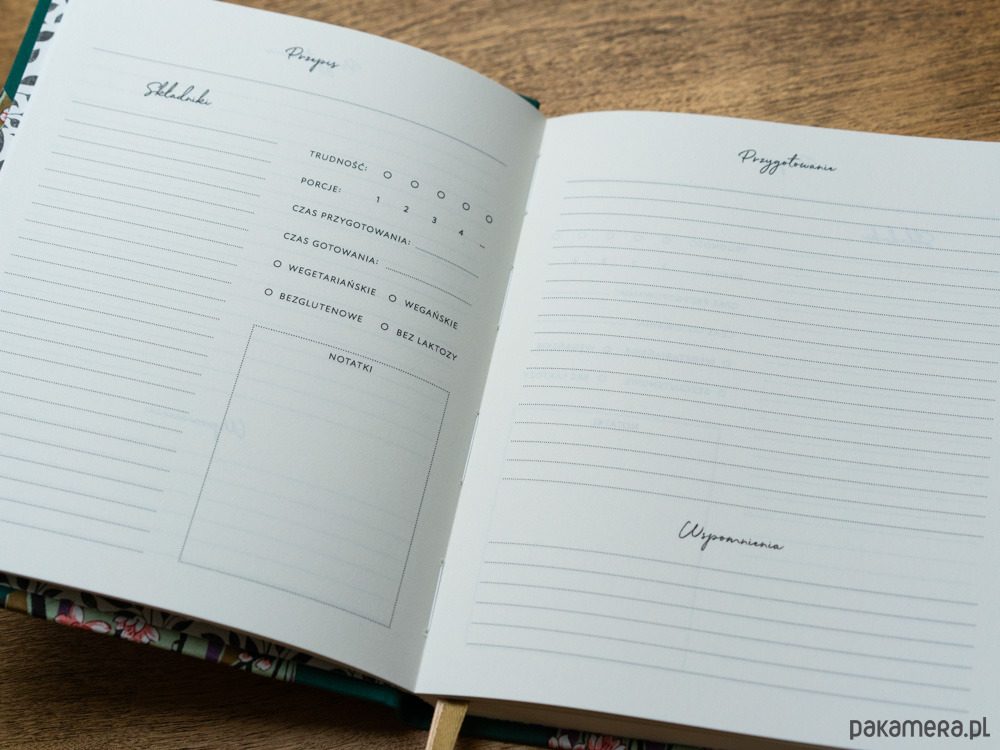 Przepis
Składniki
TRUDNOŚĆ:
PORCJE: 1 2 3 4 –
CZAS PRZYGOTOWANIA:
CZAS GOTOWANIA:
WEGETARIAŃSKIE WEGAŃSKIE
BEZGLUTENOWE BEZ LAKTOZY
NOTATKI
Przygotowanie
Wspomnienia
pakamera.pl